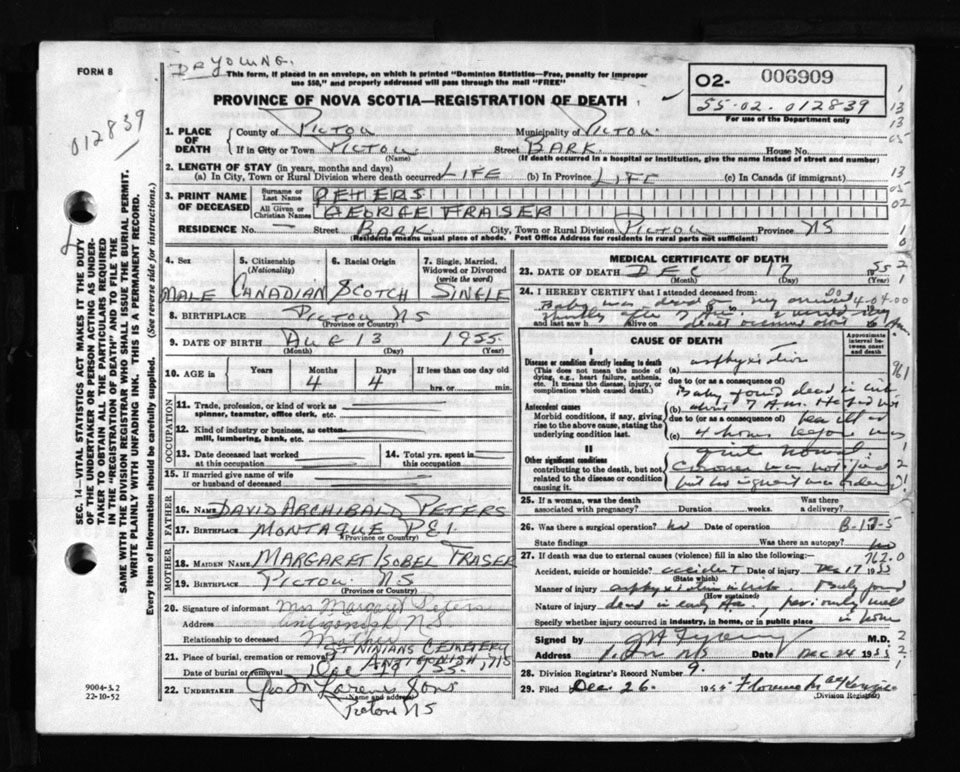 FORM 8
DR YOUNG.
This form, if placed in an envelope, on which is printed "Dominion Statistics—Free, penalty for improper
use $50," and properly addressed will pass through the mail "FREE"
PROVINCE OF NOVA SCOTIA—REGISTRATION OF DEATH
02- 006909
55.02.012839
For use of the Department only
012839
SEC. 14—VITAL STATISTICS ACT MAKES IT THE DUTY
OF THE UNDERTAKER OR PERSON ACTING AS UNDER-
TAKER TO OBTAIN ALL THE PARTICULARS REQUIRED
IN THE "REGISTRATION OF DEATH" AND TO FILE THE
SAME WITH THE DIVISION REGISTRAR WHO SHALL ISSUE THE BURIAL PERMIT.
WRITE PLAINLY WITH UNFADING INK. THIS IS A PERMANENT RECORD.
Every item of information should be carefully supplied. (See reverse side for instructions.)
1. PLACE OF DEATH
County of PICTOU Municipality of PICTOU.
If in City or Town PICTOU Street BARK. House No.
(Name) (If death occurred in a hospital or institution, give the name instead of street and number)
2. LENGTH OF STAY (in years, months and days)
(a) In City, Town or Rural Division where death occurred LIFE (b) In Province LIFE (c) In Canada (if immigrant)
3. PRINT NAME OF DECEASED
Surname or Last Name PETERS
All Given or Christian Names GEORGE FRAISER
RESIDENCE No. — Street BARK. City, Town or Rural Division PICTOU Province NS
(Residence means usual place of abode. Post Office Address for residents in rural parts not sufficient)
4. Sex MALE
5. Citizenship (Nationality) CANADIAN
6. Racial Origin SCOTCH
7. Single, Married, Widowed or Divorced (write the word) SINGLE
8. BIRTHPLACE PICTOU NS
(Province or Country)
9. DATE OF BIRTH AUG 13 1955
(Month) (Day) (Year)
10. AGE in Years Months 4 Days 4 If less than one day old
hrs. or min.
OCCUPATION
11. Trade, profession, or kind of work as
spinner, teamster, office clerk, etc.
12. Kind of industry or business, as cotton-
mill, lumbering, bank, etc.
13. Date deceased last worked
at this occupation
14. Total yrs. spent in
this occupation
15. If married give name of wife
or husband of deceased
FATHER
16. Name DAVID ARCHIBALD PETERS
17. Birthplace MONTAGUE PEI
(Province or Country)
MOTHER
18. Maiden Name MARGARET ISOBEL FRASER
19. Birthplace PICTOU. NS
(Province or Country)
20. Signature of informant Mrs Margaret Peters
Address Antigonish NS
Relationship to deceased Mother
21. Place of burial, cremation or removal ST NINIANS CEMETERY
ANTIGONISH, NS
Date of burial or removal Dec 19 55.
22. UNDERTAKER
(Name and address)
Pictou NS
9004-3.2
22-10-52
MEDICAL CERTIFICATE OF DEATH
23. DATE OF DEATH DEC 17 1955
(Month) (Day) (Year)
24. I HEREBY CERTIFY that I attended deceased from:
Baby was dead on my arrival
shortly after 7 A.m.
and last saw h alive on
4-04-00
CAUSE OF DEATH
Approximate interval between onset and death
I
Disease or condition directly leading to death
(This does not mean the mode of
dying, e.g., heart failure, asthenia,
etc. It means the disease, injury, or
complication which caused death.)
(a) asphyxiation
due to (or as a consequence of)
Baby found dead in crib
Antecedent causes
Morbid conditions, if any, giving
rise to the above cause, stating the
underlying condition last.
(b) about 7 A.m. He had not
due to (or as a consequence of) been ill
(c) 4 hours before was
II
Other significant conditions
contributing to the death, but not
related to the disease or condition
causing it.
quite normal.
Coroner was notified
but no inquest was ordered
25. If a woman, was the death
associated with pregnancy? Duration weeks. Was there a delivery?
26. Was there a surgical operation? no Date of operation
State findings Was there an autopsy? no
27. If death was due to external causes (violence) fill in also the following:—
762.0
Accident, suicide or homicide? accident Date of injury Dec 17 1955
(State which)
Manner of injury asphyxiation in crib Baby found
(How sustained)
Nature of injury dead in early A.m., previously well
Specify whether injury occurred in industry, in home, or in public place in home
Signed by M.D.
Address Pictou NS Date Dec 24 1955
28. Division Registrar's Record Number 9.
29. Filed Dec. 26. 1955 Florence MacKenzie
(Division Registrar)